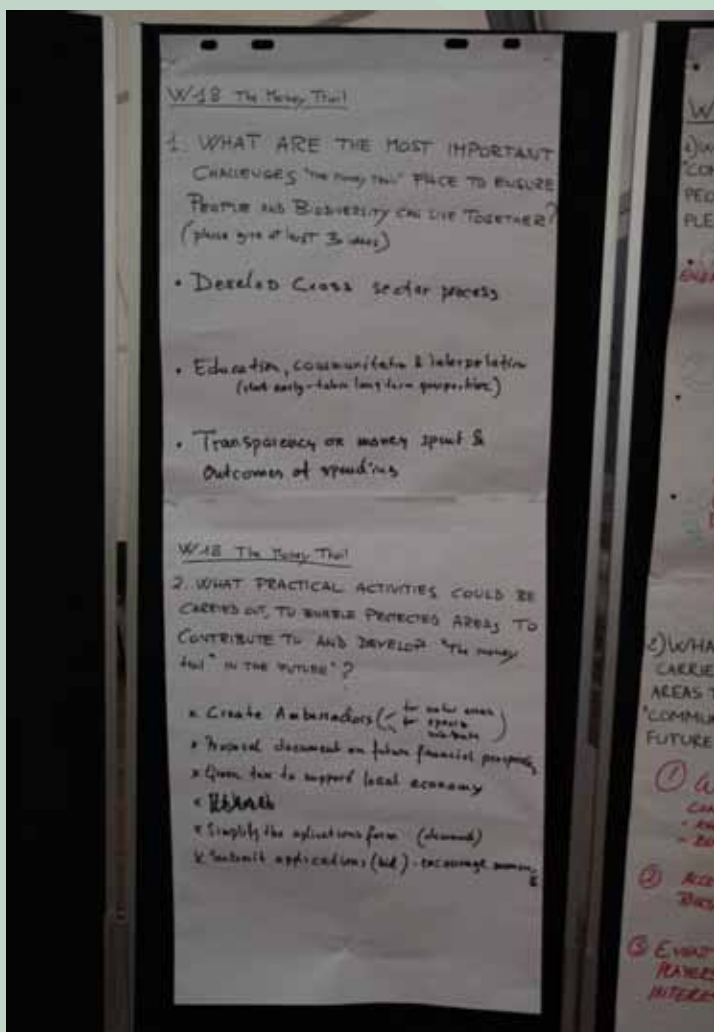 W18 The Money Trail
1. WHAT ARE THE MOST IMPORTANT
CHALLENGES "The money trail" FACE TO ENSURE
PEOPLE AND BIODIVERSITY CAN LIVE TOGETHER?
(please give at least 3 ideas)
• Develop Cross sector process
• Education, communication & interpretation
(start early - taken long term perspective)
• Transparency on money spent &
Outcomes of spending
W18 The Money Trail
2. WHAT PRACTICAL ACTIVITIES COULD BE
CARRIED OUT, TO ENABLE PROTECTED AREAS TO
CONTRIBUTE TO AND DEVELOP "The money
trail" IN THE FUTURE"?
x Create Ambassadors (
for
for species
x Proposal document on future financial
x Green tax to support local economy
x Simplify the aplications form (demand)
x Submit applications (bid) - encourage
W
1) W
"CO
PEO
PLE
2) WHA
CARRIE
AREAS T
"COMMU
FUTURE
①
②
③ EVENT
PLAYERS
INTERES